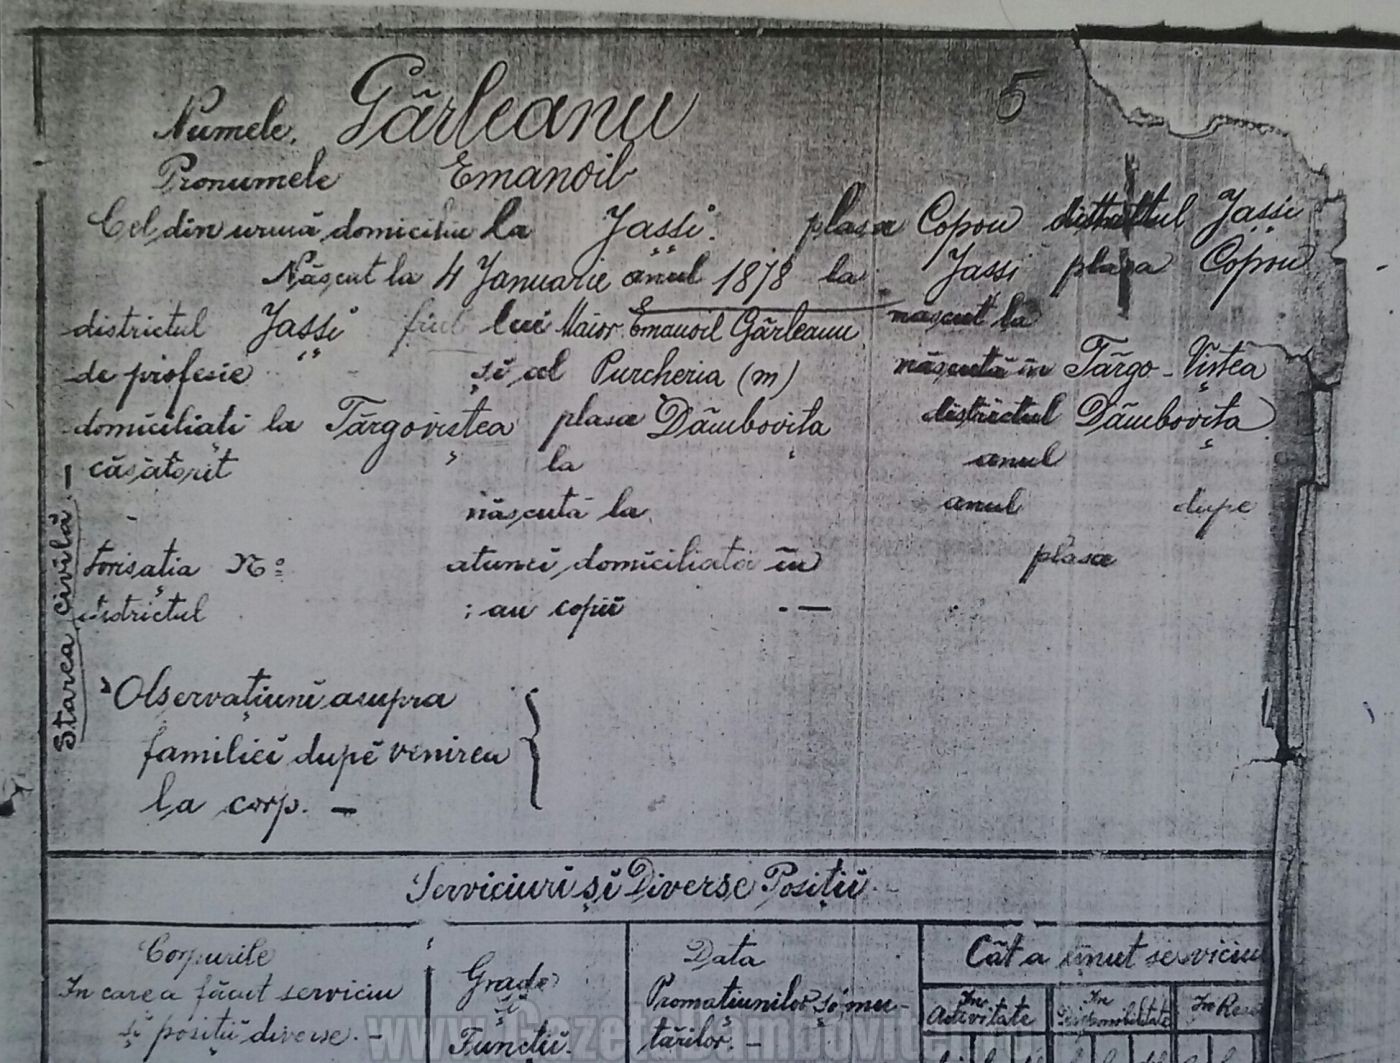 5
Numele. Gârleanu
Pronumele Emanoil
Cel din urmă domiciliu la Jașși. plasa Copou districtul Jașși
Născut la 4 Januarie anul 1878 la Jassi plasa Copou
districtul Jașși fiul lui Maior. Emanoil Gârleanu născut la
de profesie și al Purcheria (m) născută în Târgo-Viștea
domiciliați la Târgoviștea plasa Dâmbovița districtul Dâmbovița
căsătorit la anul
născută la anul dupe
torisația No atunci domiciliată în plasa
districtul : au copii . —
Starea Civilă. —
Observațiuni asupra
familiei dupĕ venirea
la corp. —
Serviciuri și Diverse Posiții.
Corpurile
In care a făcut serviciu
și posiții diverse. -
Grade
și
Funcții.
Data
Promațiunilor și mu-
tărilor. -
Cât a ținut serviciu
In Activitate
In Disponibilitate
In Rese